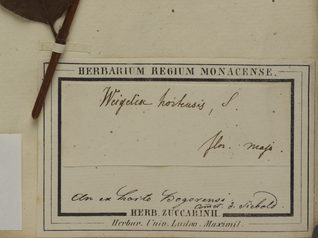 HERBARIUM REGIUM MONACENSE.
Weigelia hortensis, S.
flor. majo.
An ex horto Bogorensi
comt. d. Siebold.
HERB. ZUCCARINII.
Herbar. Univ. Ludov. Maximil.